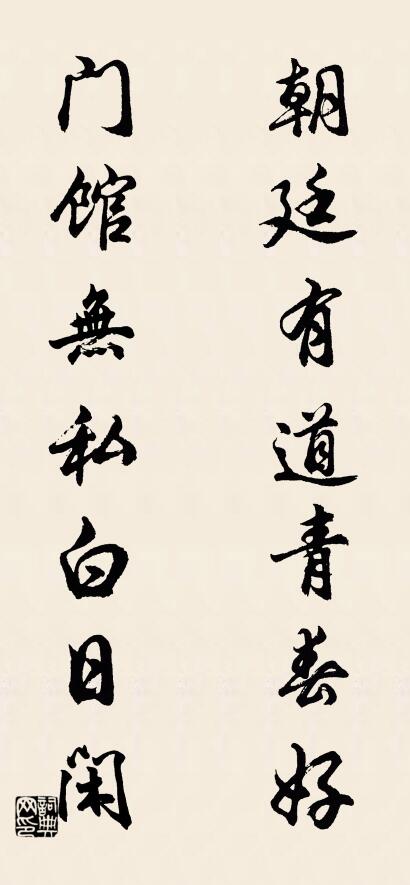 朝廷有道青春好
门馆無私白日闲
詞典网印